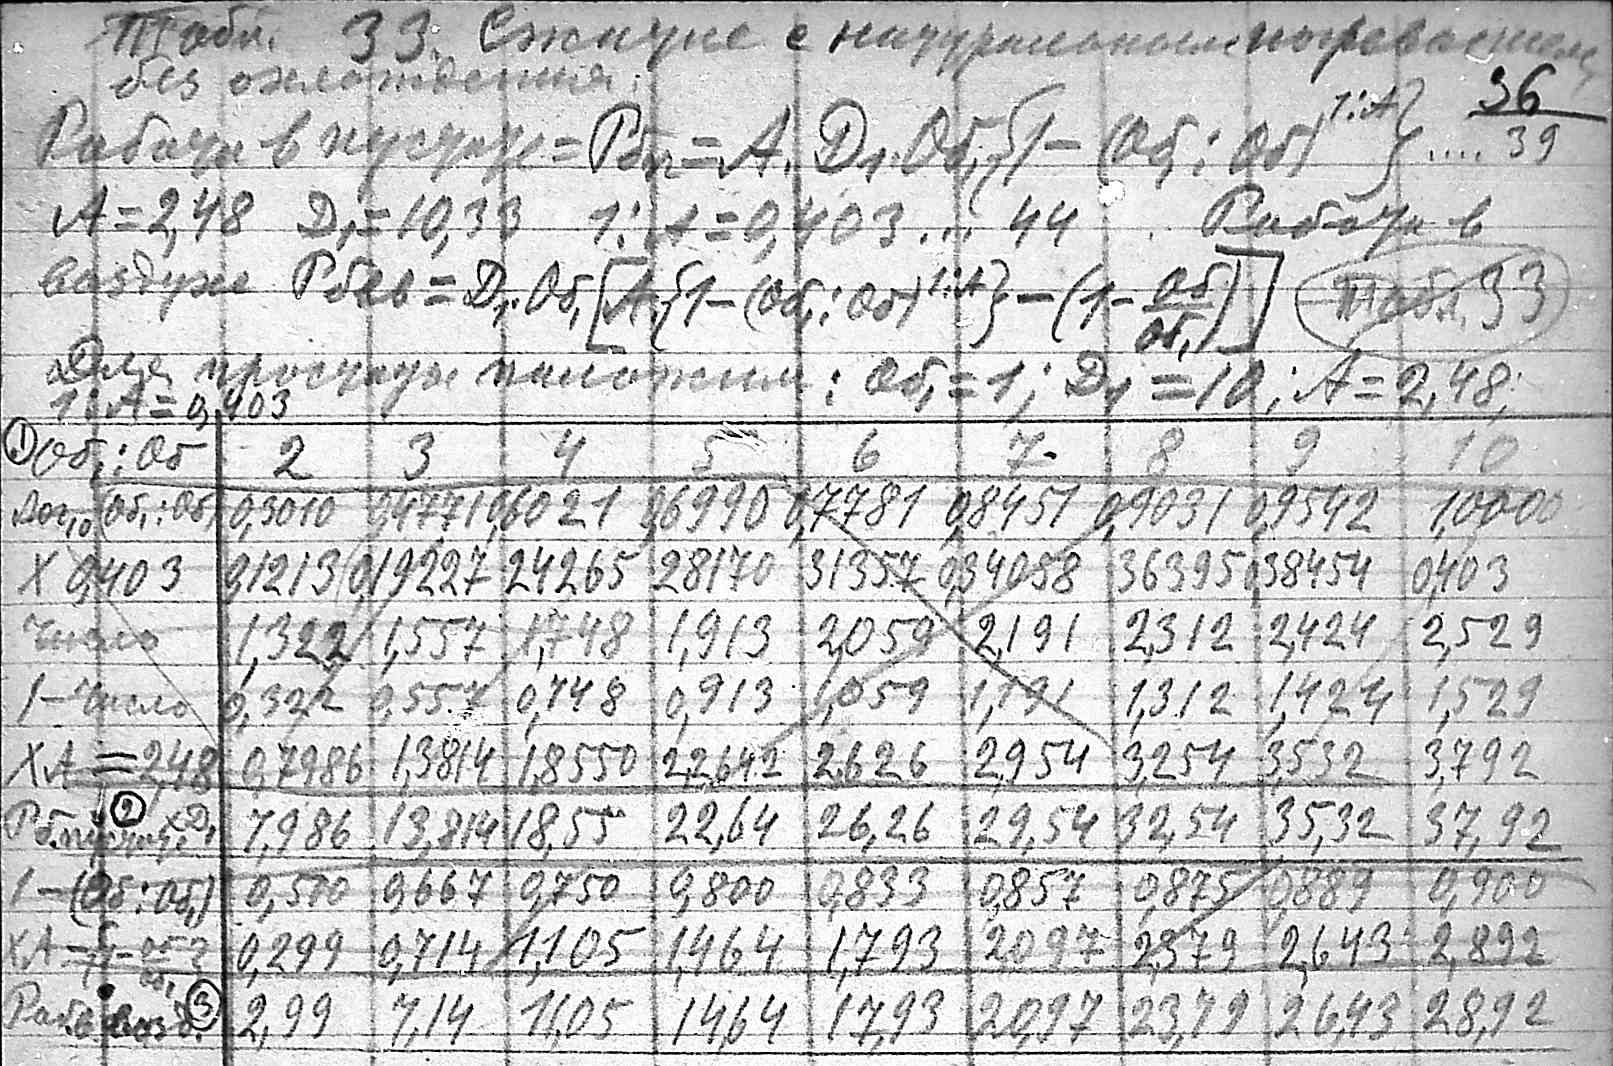 Табл. 33. Сжатие с натуральным нагреванием
без охлаждения.
36
39
Работа в пустоте = Рбп = А. Д₁. Об₁ {1 – (Об₁ : Об)^1:А} ....
А = 2,48 Д₁ = 10,33 1 : А = 0,403 ... 44 Работа в
воздухе Рбвв = Д₁. Об₁ [А. {1 – (Об₁ : Об)^1:А} – (1 – Об/Об₁)] Табл. 33
Для простоты положим : Об₁ = 1 ; Д₁ = 10 ; А = 2,48;
1 : А = 0,403
① Об₁ : Об 2 3 4 5 6 7 8 9 10
Log₁₀ (Об₁ : Об) 0,3010 0,4771 0,6021 0,6990 0,7781 0,8451 0,9031 0,9542 1,0000
X 0,403 0,1213 0,19227 24265 28170 31357 0,34058 36395 0,38454 0,403
Число 1,322 1,557 1,748 1,913 2,059 2,191 2,312 2,424 2,529
1 – Число 0,322 0,557 0,748 0,913 1,059 1,191 1,312 1,424 1,529
XA = 2,48 0,7986 1,3814 1,8550 2,2642 2,626 2,954 3,254 3,532 3,792
Рб. пустот. ② xД₁ 7,986 13,814 18,55 22,64 26,26 29,54 32,54 35,32 37,92
1 – (Об : Об₁) 0,500 0,667 0,750 0,800 0,833 0,857 0,875 0,889 0,900
XA – {1 – Об/Об₁} 0,299 0,714 1,105 1,464 1,793 2,097 2,379 2,643 2,892
Раб. в возд. ③ 2,99 7,14 11,05 14,64 17,93 20,97 23,79 26,43 28,92